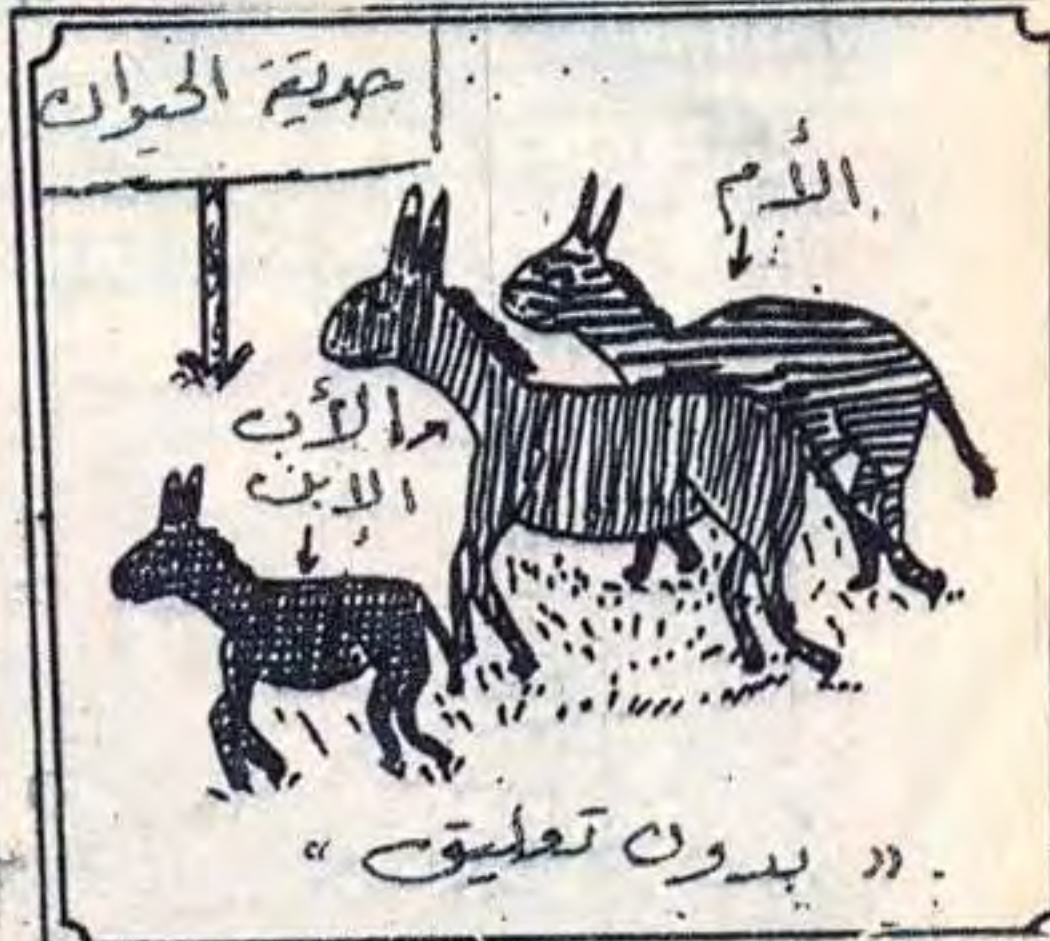 حديقة الحيوان
الأم
والأب
الإبن
« بدون تعليق »